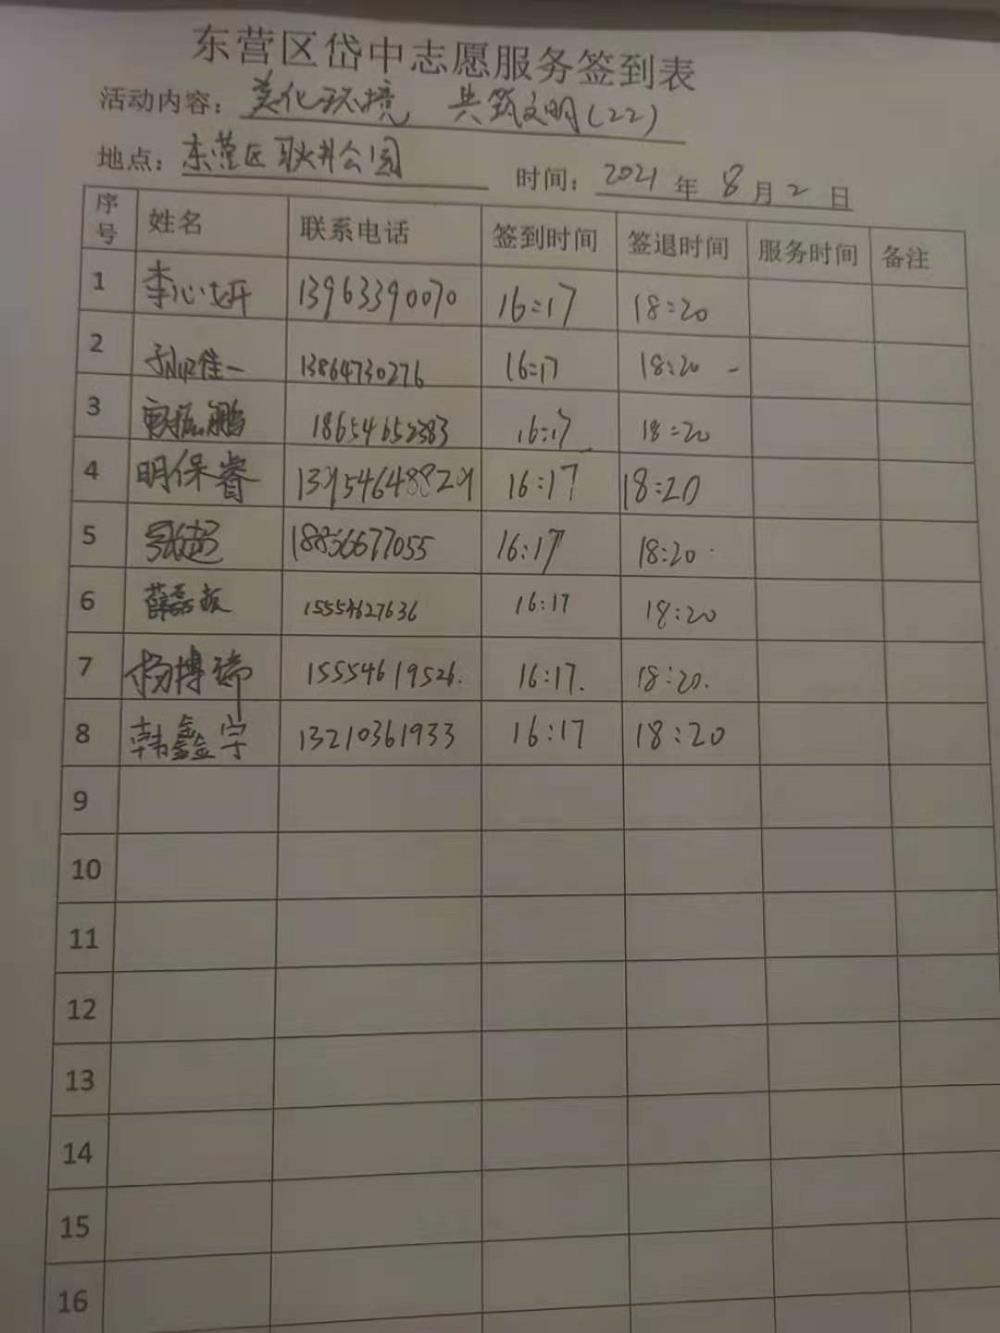 东营区岱中志愿服务签到表
活动内容：美化环境 共筑文明(22)
地点：东营区耿井公园 时间：2021年8月2日
序号 姓名 联系电话 签到时间 签退时间 服务时间 备注
1 李心妍 13963390070 16:17 18:20
2 佳一 13864730276 16:17 18:20
3 鹏 18654652383 16:17 18:20
4 明保睿 13954648829 16:17 18:20
5 张超 18856677055 16:17 18:20
6 薛磊 15554627636 16:17 18:20
7 杨博瑞 15554619526. 16:17. 18:20.
8 韩鑫宇 13210361933 16:17 18:20
9
10
11
12
13
14
15
16